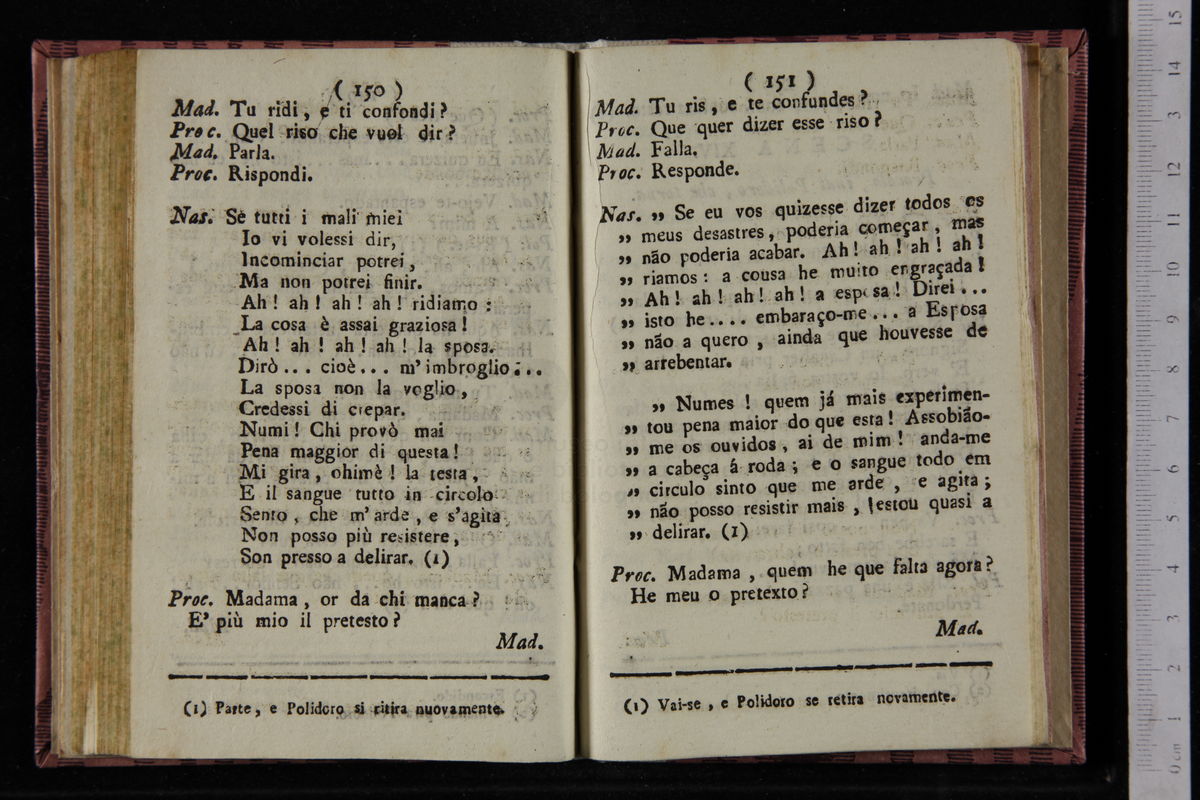 ( 150 )
Mad. Tu ridi, e ti confondi?
Proc. Quel riso che vuol dir?
Mad. Parla.
Proc. Rispondi.
Nas. Se tutti i mali miei
Io vi volessi dir,
Incominciar potrei,
Ma non potrei finir.
Ah! ah! ah! ah! ridiamo:
La cosa è assai graziosa!
Ah! ah! ah! ah! la sposa.
Dirò... cioè... m'imbroglio...
La sposa non la voglio,
Credessi di crepar.
Numi! Chi provò mai
Pena maggior di questa!
Mi gira, ohimè! la testa,
E il sangue tutto in circolo
Sento, che m'arde, e s'agita
Non posso più resistere,
Son presso a delirar. (1)
Proc. Madama, or da chi manca?
E' più mio il pretesto?
Mad.
(1) Parte, e Polidoro si ritira nuovamente.
( 151 )
Mad. Tu ris, e te confundes?
Proc. Que quer dizer esse riso?
Mad. Falla.
Proc. Responde.
Nas. ,, Se eu vos quizesse dizer todos os
,, meus desastres, poderia começar, mas
,, não poderia acabar. Ah! ah! ah! ah!
,, riamos: a cousa he muito engraçada!
,, Ah! ah! ah! ah! a esposa! Direi...
,, isto he.... embaraço-me... a Esposa
,, não a quero, ainda que houvesse de
,, arrebentar.
,, Numes! quem já mais experimen-
,, tou pena maior do que esta! Assobião-
,, me os ouvidos, ai de mim! anda-me
,, a cabeça á roda; e o sangue todo em
,, circulo sinto que me arde, e agita;
,, não posso resistir mais, estou quasi a
,, delirar. (1)
Proc. Madama, quem he que falta agora?
He meu o pretexto?
Mad.
(1) Vai-se, e Polidoro se retira novamente.
0 cm 1 2 3 4 5 6 7 8 9 10 11 12 13 14 15